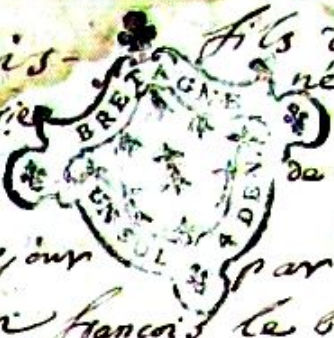 is- fils
né
BRETAGNE
de
UN SOL 4 DENIE
jour par
francois le b